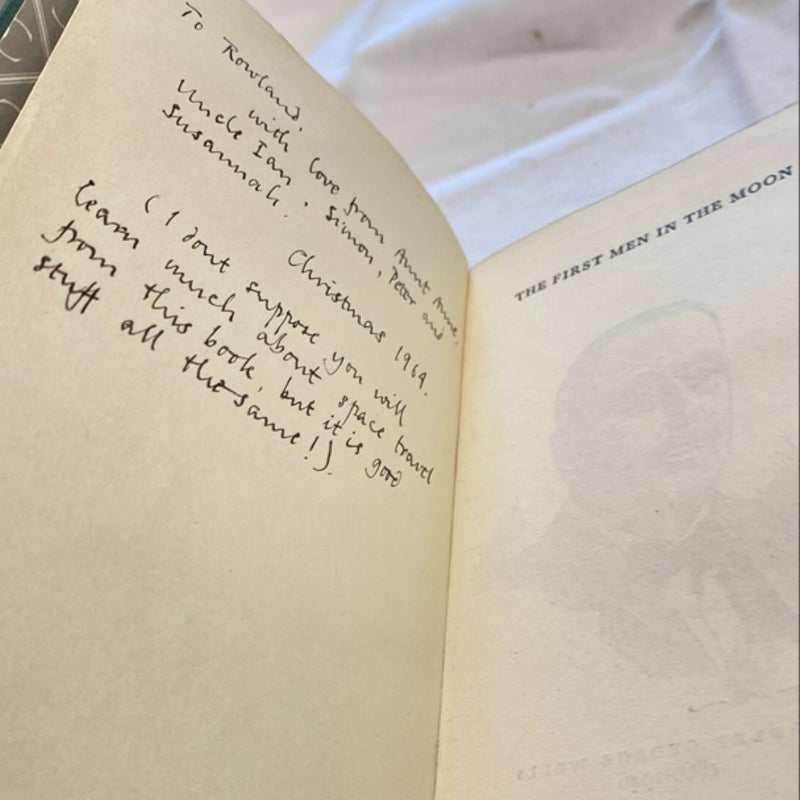 To Rowland,
with love from Aunt Anne,
Uncle Ian, Simon, Peter and
Susannah.
Christmas 1964.
(I dont suppose you will
learn much about space travel
from this book, but it is good
stuff all the same!).
THE FIRST MEN IN THE MOON